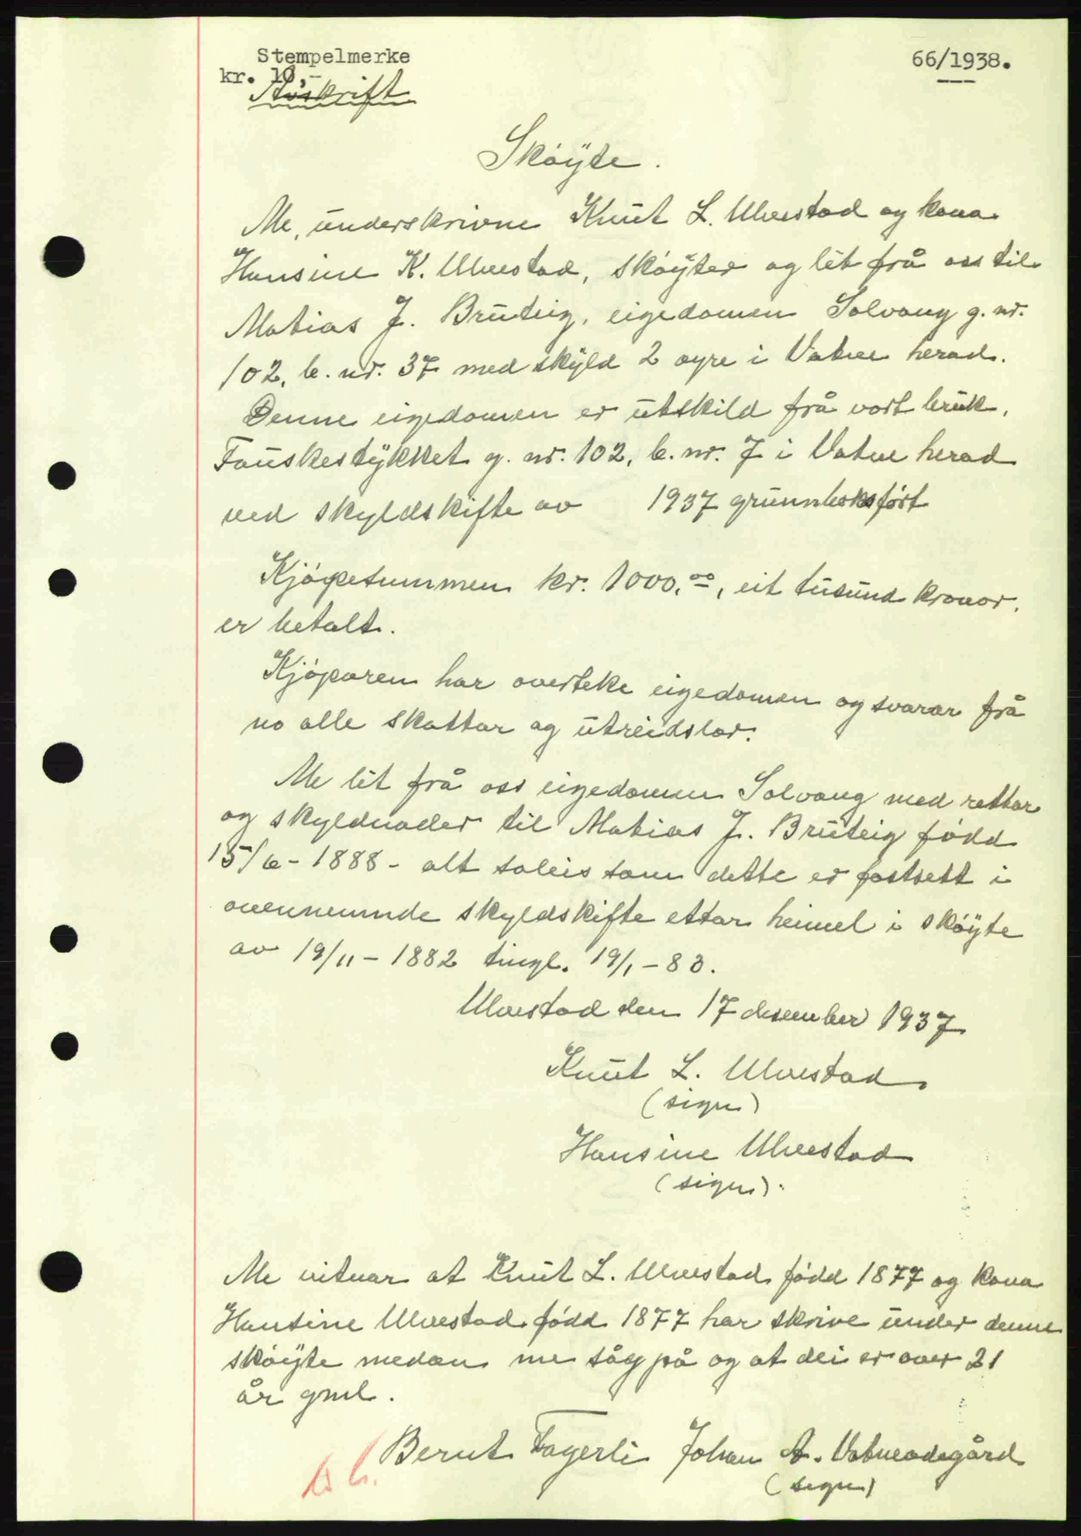 Stempelmerke
kr. 10,-
66/1938.
Avskrift
Skøyte.
Me, underskrivne Knut L. Ulvestad og kona
Hansine K. Ulvestad, skøyter og lét frå oss til
Matias J. Bruteig, eigedomen Solvang g. nr.
102, b. nr. 37 med skyld 2 øyre i Vatne herad.
Denne eigedomen er utskild frå vort bruk,
Fauskestykket g. nr. 102, b. nr. 7 i Vatne herad
ved skyldskifte av 1937 grunnboksført
Kjøpesummen kr. 1000,00, eit tusund kronor,
er betalt.
Kjøparen har overteke eigedomen og svarar frå
no alle skattar og utreidslor.
Me lét frå oss eigedomen Solvang med rettar
og skyldnader til Matias J. Bruteig fødd
15/6 - 1888 - alt soleis som dette er fastsett i
ovennemnde skyldskifte ettar heimel i skøyte
av 19/11 - 1882 tingl. 19/1 - 83.
Ulvestad den 17 desember 1937
Knut L. Ulvestad
(sign)
Hansine Ulvestad
(sign).
Me vitnar at Knut L. Ulvestad fødd 1877 og kona
Hansine Ulvestad fødd 1877 har skrive under denne
skøyte medan me såg på og at dei er over 21
år gml.
Bernt Fagerli Johan A. Vatneødegård
(sign)